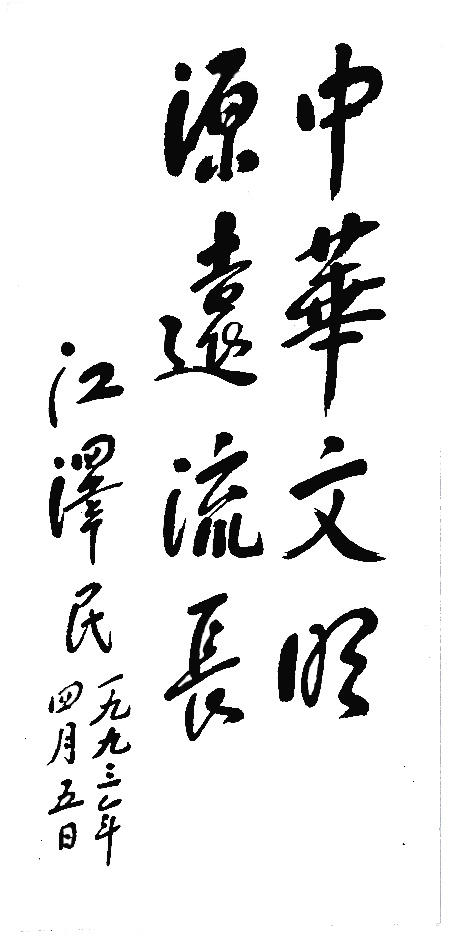 中華文明
源遠流長
江澤民
一九九三年
四月五日